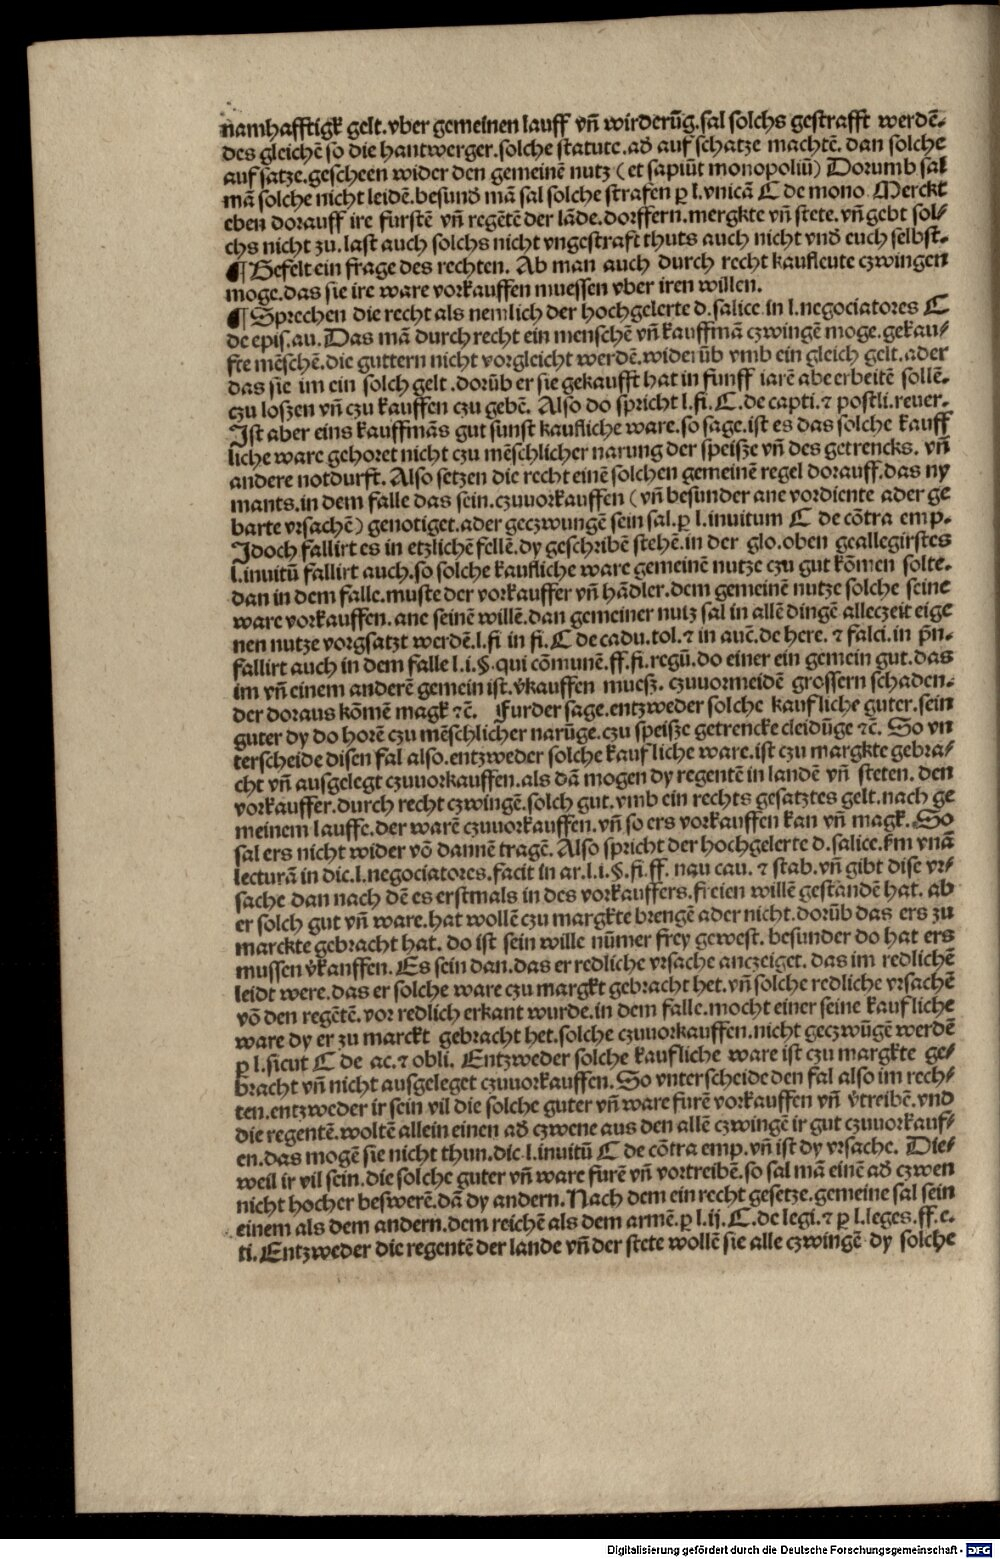 namhafftigk gelt.vber gemeinen lauff vn̄ wirderūg.sal solchs gestrafft werdē.
des gleichē so die hantwerger.solche statute.ad̕ auf schatze machtē.dan solche
auf satze.gescheen wider den gemeinē nutz (et sapiūt monopoliū) Dorumb sal
mā solche nicht leidē.besund̕ mā sal solche strafen ꝑ l.vnicā C de mono Merckt
eben dorauff ire fürstē vn̄ regētē der lāde.dorffern.mergkte vn̄ stete.vn̄ gebt sol⸗
chs nicht zu.last auch solchs nicht vngestraft thuts auch nicht vnd̕ euch selbst.
¶ Befelt ein frage des rechten. Ab man auch durch recht kaufleute czwingen
moge.das sie ire ware vorkauffen muessen vber iren willen.
¶ Sprechen die recht als nemlich der hochgelerte d.salice.in l.negociatores C
de epis.au.Das mā durch recht ein menschē vn̄ kauffmā czwingē moge.gekau⸗
fte mēschē.die guttern nicht vorgleicht werdē.widerūb vmb ein gleich gelt.ader
das sie im ein solch gelt.dorūb er sie gekaufft hat in funff iarē abe erbeitē sollē.
czu loszen vn̄ czu kauffen czu gebē. Also do spricht l.fi.C.de capti.⁊ postli.reuer.
Ist aber eins kauffmās gut sunst kaufliche ware.so sage.ist es das solche kauff
liche ware gehoret nicht czu mēschlicher narung der speisze vn̄ des getrencks. vn̄
andere notdurft. Also setzen die recht einē solchen gemeinē regel dorauff.das ny
mants.in dem falle das sein.czuuorkauffen (vn̄ besunder ane vordiente ader ge
barte vrsachē) genotiget.ader geczwungē sein sal.ꝑ l.inuitum C de cōtra emp.
Jdoch fallirt es in etzlichē fellē.dy geschribē stehē.in der glo.oben geallegirstes
l.inuitū fallirt auch.so solche kaufliche ware gemeinē nutze czu gut kōmen solte.
dan in dem falle.muste der vorkauffer vn̄ hādler.dem gemeinē nutze solche seine
ware vorkauffen.ane seinē willē.dan gemeiner nutz sal in allē dingē alleczeit eige
nen nutze vorgsatzt werdē.l.fi in fi.C de cadu.tol.⁊ in auē.de here.⁊ falci.in p̄n.
fallirt auch in dem falle l.i.§.qui cōmunē.ff.fi.regū.do einer ein gemein gut.das
im vn̄ einem anderē gemein ist.v̕kauffen muesz.czuuormeidē grossern schaden.
der doraus kōmē magk ⁊c̄. Furder sage.entzweder solche kaufliche guter.sein
guter dy do horē czu mēschlicher narūge.czu speisze getrencke cleidūge ⁊c̄. So vn
terscheide disen fal also.entzweder solche kaufliche ware.ist czu margkte gebra⸗
cht vn̄ ausgelegt czuuorkauffen.als dā mogen dy regentē in landē vn̄ steten.den
vorkauffer.durch recht czwingē.solch gut.vmb ein rechts gesatztes gelt.nach ge
meinem lauffe.der warē czuuorkauffen.vn̄ so ers vorkauffen kan vn̄ magk.So
sal ers nicht wider vō dannē tragē. Also spricht der hochgelerte d.salice.km vnā
lecturā in dic.l.negociatores.facit in ar.l.i.§.fi.ff. nau cau. ⁊ stab.vn̄ gibt dise vr⸗
sache dan nach dē es erstmals in des vorkauffers.freien willē gestandē hat. ab
er solch gut vn̄ ware.hat wollē czu margkte brengē ader nicht.dorūb das ers zu
marckte gebracht hat. do ist sein wille nūmer frey gewest. besunder do hat ers
mussen v̕kauffen. Es sein dan.das er redliche vrsache anczeiget. das im redlichē
leidt were.das er solche ware czu margkt gebracht het.vn̄ solche redliche vrsachē
vō den regētē.vor redlich erkant wurde.in dem falle.mocht einer seine kaufliche
ware dy er zu marckt gebracht het.solche czuuorkauffen.nicht geczwūgē werdē
ꝑ l.sicut C de ac.⁊ obli. Entzweder solche kaufliche ware ist czu margkte ge⸗
bracht vn̄ nicht ausgeleget czuuorkauffen. So vnterscheide den fal also im rech⸗
ten.entzweder ir sein vil die solche guter vn̄ ware furē vorkauffen vn̄ v̕treibē.vnd
die regentē.woltē allein einen ad̕ czwene aus den allē czwingē ir gut czuuorkauf⸗
en.das mogē sie nicht thun.dic.l.inuitū C de cōtra emp.vn̄ ist dy vrsache. Die⸗
weil ir vil sein.die solche guter vn̄ ware furē vn̄ vortreibē.so sal mā einē ad̕ czwen
nicht hocher beswerē.dā dy andern.Nach dem ein recht gesetze.gemeine sal sein
einem als dem andern.dem reichē als dem armē.ꝑ l.ij.C.de legi.⁊ ꝑ l.leges.ff.c.
ti.Entzweder die regentē der lande vn̄ der stete wollē sie alle czwingē dy solche
Digitalisierung gefördert durch die Deutsche Forschungsgemeinschaft - DFG